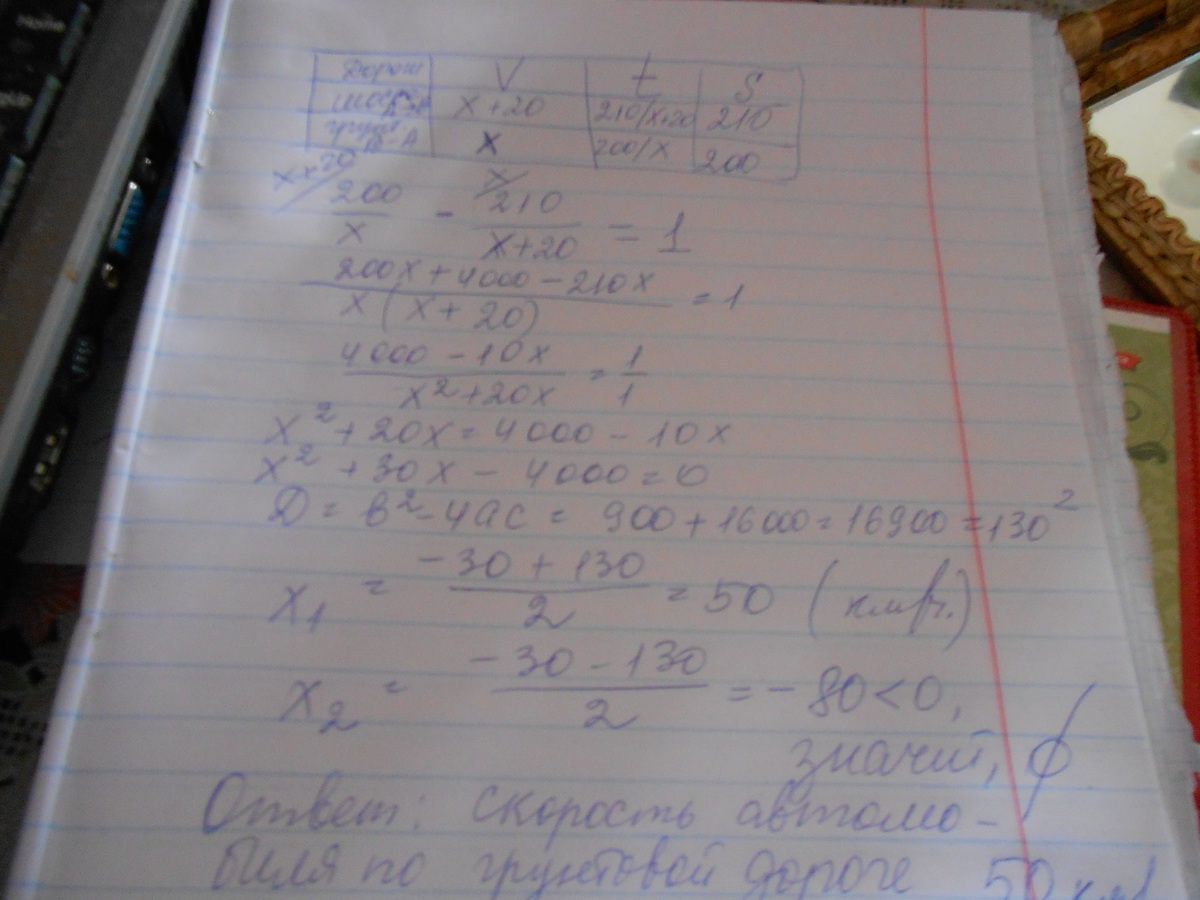 Дорога V t S
шоссе А-В x+20 210/x+20 210
грунт В-А x 200/x 200
x+20/ x/
200/x - 210/x+20 = 1
200x+4000-210x / x(x+20) = 1
4000-10x / x²+20x = 1/1
x²+20x=4000-10x
x²+30x-4000=0
D = b²-4ac = 900+16000=16900=130²
x₁ = -30+130 / 2 = 50 (км/ч.)
x₂ = -30-130 / 2 = -80<0,
значит, ∅
Ответ: скорость автомо-
биля по грунтовой дороге 50 км/